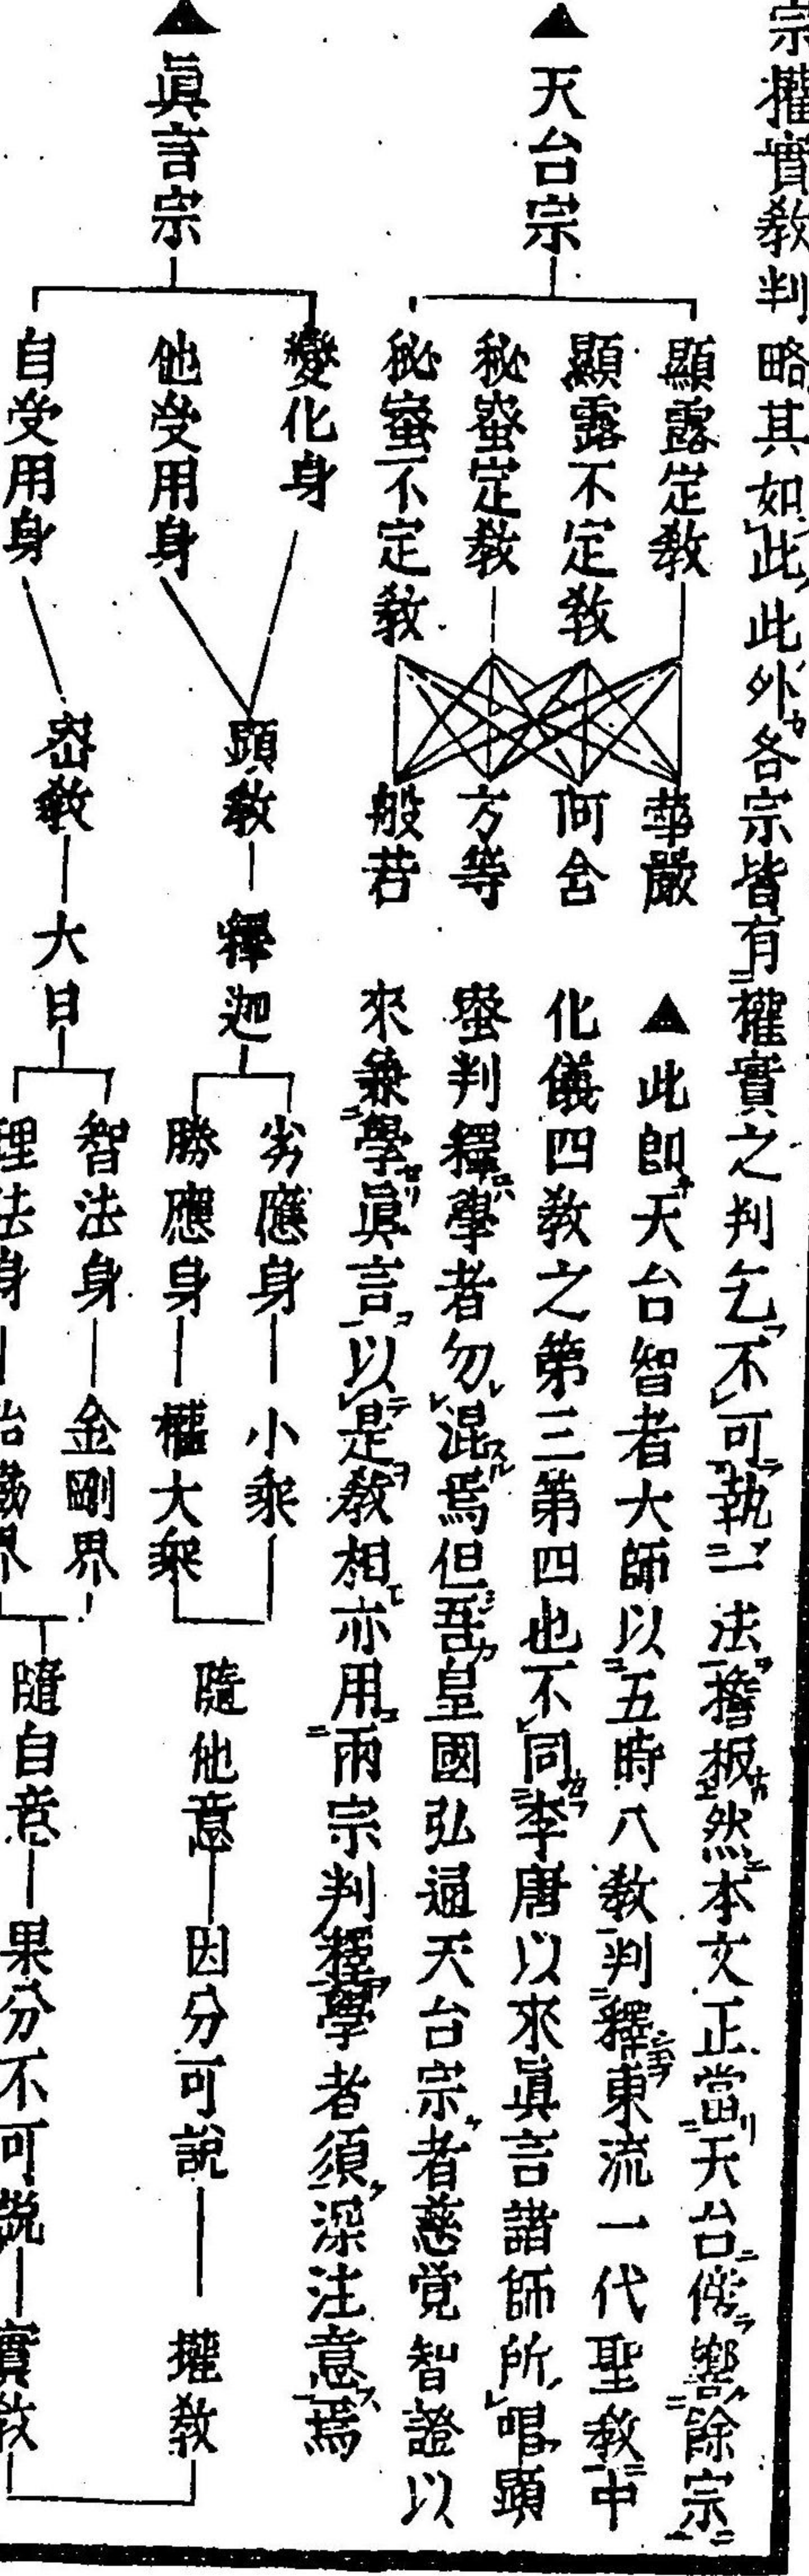 宗權實教判略其如此此外各宗皆有權實之判乞不可執一法擔板然本文正當天台傍響餘宗
▲天台宗
顯露定教
顯露不定教
秘密定教
秘密不定教
華嚴
阿含
方等
般若
▲此卽天台智者大師以五時八教判釋東流一代聖教中
化儀四教之第三第四也不同李唐以來眞言諸師所唱顯
密判釋學者勿混焉但吾皇國弘通天台宗者慈覚智證以
來兼學眞言以是教相亦用兩宗判釋學者須深注意焉
▲眞言宗
變化身
他受用身
自受用身
顯教
釋迦
劣應身
小衆
勝應身
權大衆
隨他意
因分可說
權教
密教
大日
智法身
金剛界
理法身
胎藏界
隨自意
果分不可說
實教